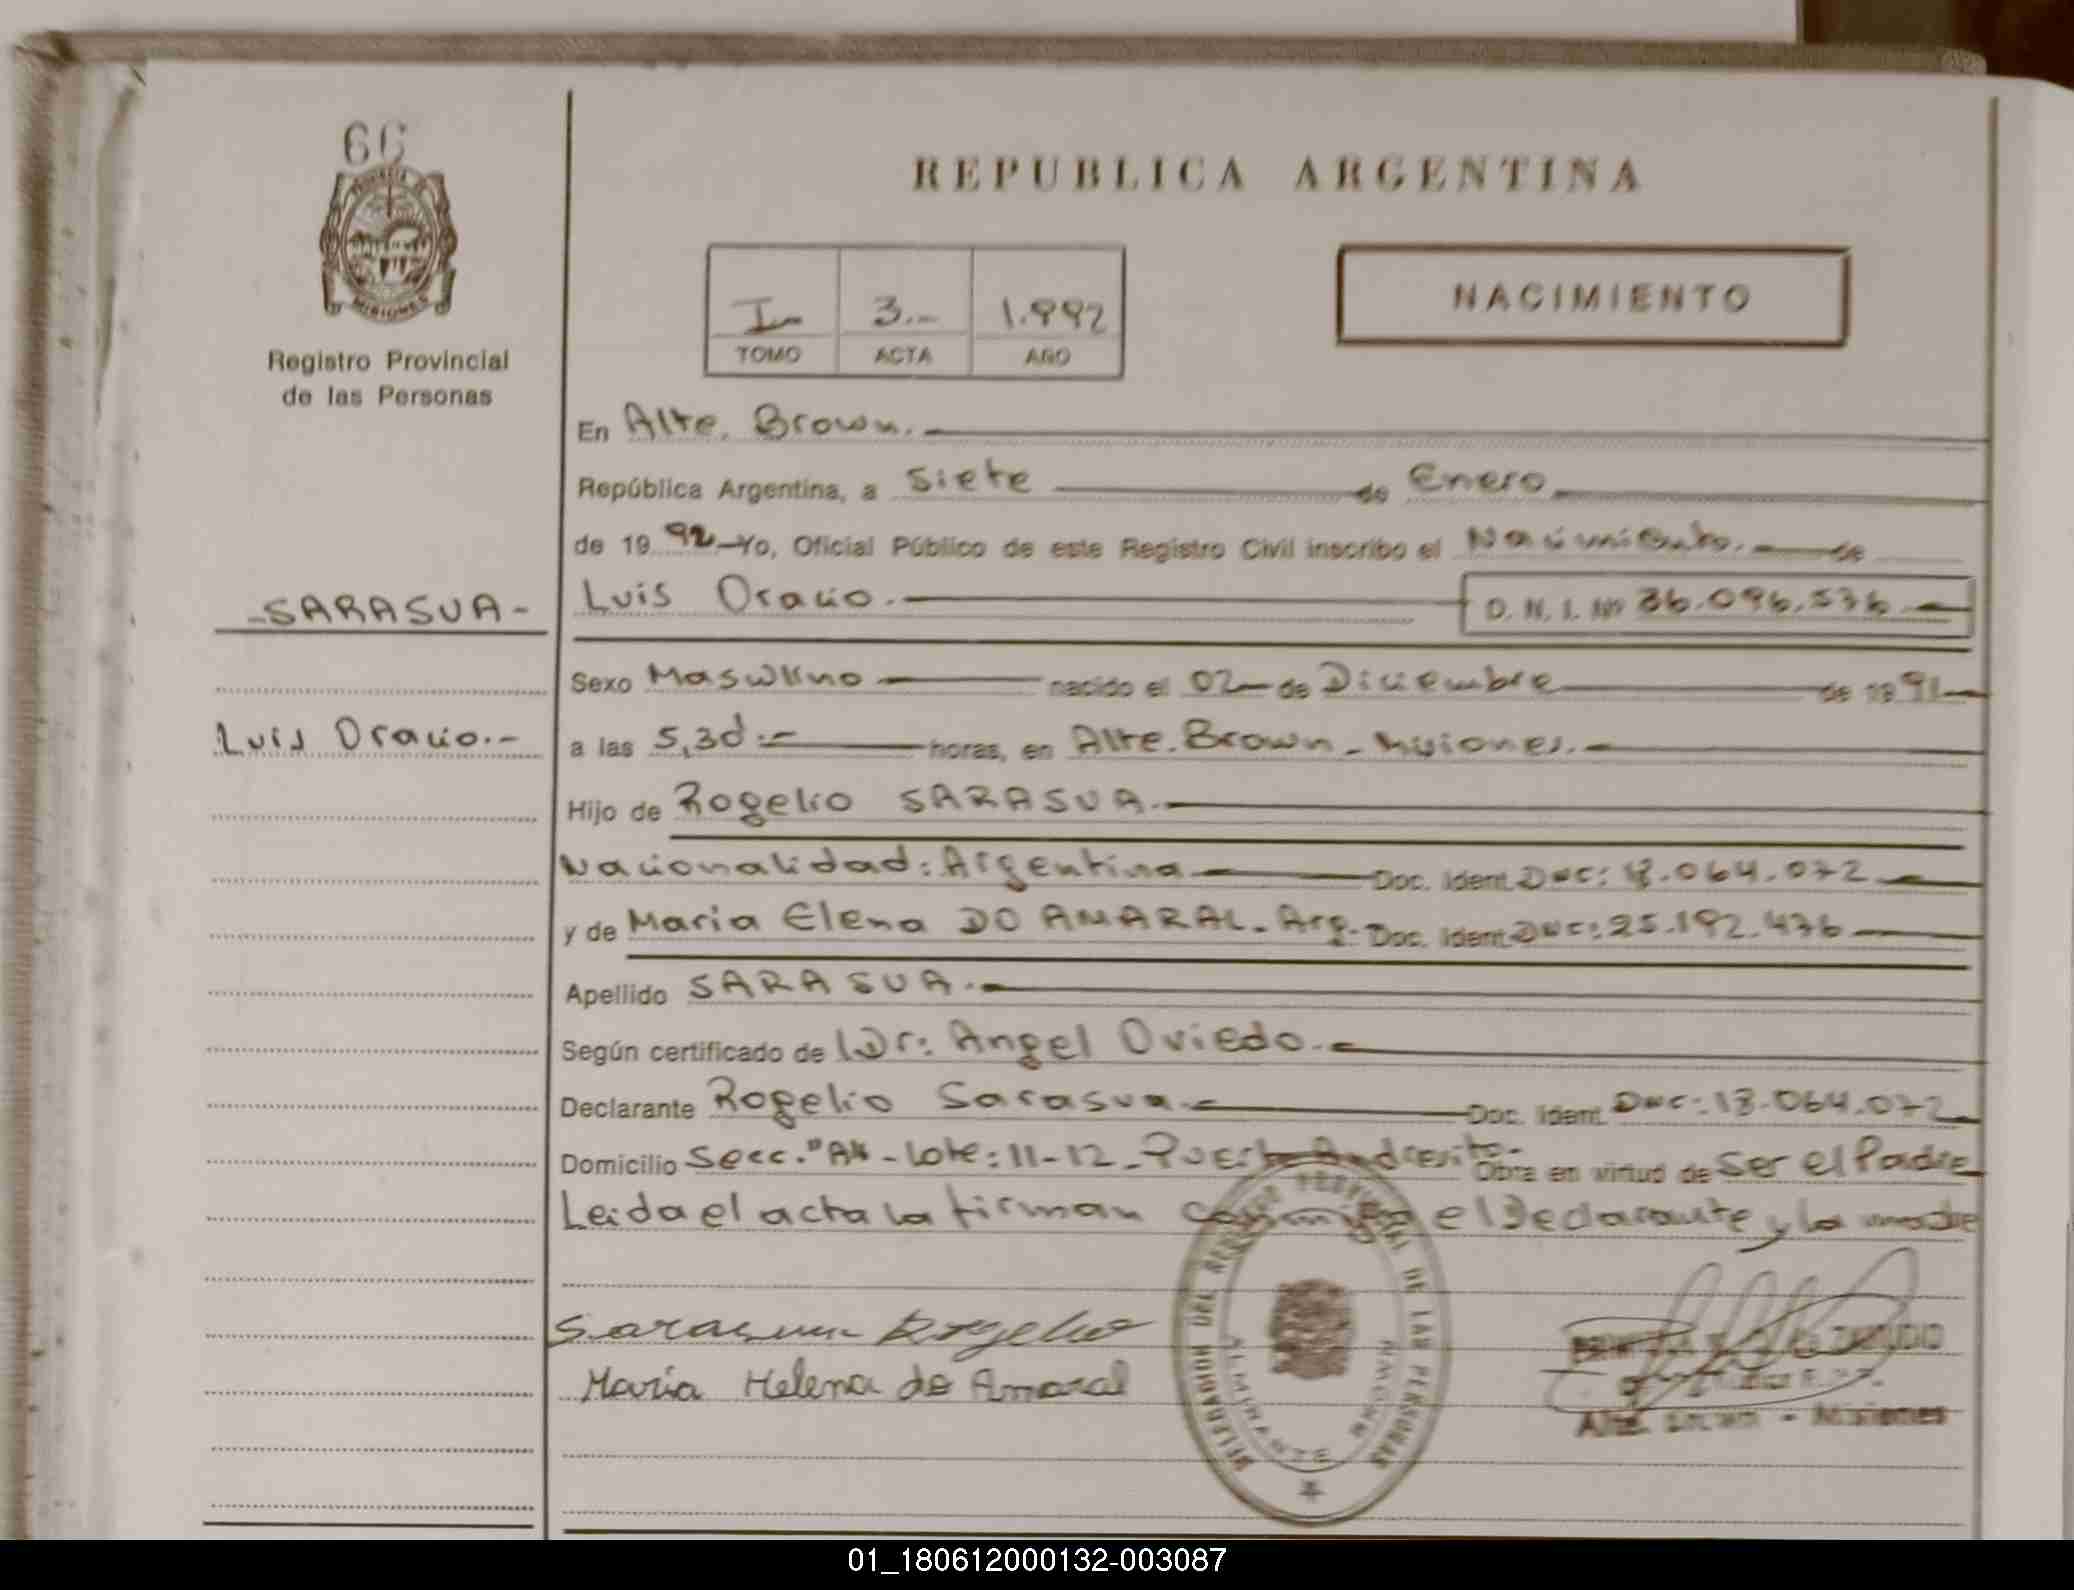 66
PROVINCIA DE
MISIONES
Registro Provincial
de las Personas
REPUBLICA ARGENTINA
I 3.- 1.992
TOMO ACTA AÑO
NACIMIENTO
En Alte. Brown.
República Argentina, a Siete de Enero
de 19 92 Yo, Oficial Público de este Registro Civil inscribo el Nacimiento. de
-SARASUA-
Luis Oracio. D. N. I. Nº 36.096.576
Sexo Masculino nacido el 02 de Diciembre de 19 91
Luis Oracio.-
a las 5,30.- horas, en Alte. Brown - Misiones.
Hijo de Rogelio SARASUA.
Nacionalidad: Argentina Doc. Ident. DNI: 18.064.072
y de Maria Elena DO AMARAL. Arg. Doc. Ident. DNI: 25.192.476
Apellido SARASUA.
Según certificado de Dr: Angel Oviedo.
Declarante Rogelio Sarasua. Doc. Ident. DNI: 18.064.072
Domicilio Secc. "A" - Lote: 11-12 - Puerto Andresito- Obra en virtud de Ser el Padre
Leida el acta la firman conmigo el Declarante y la madre
Sarasua Rogelio
Maria Helena do Amaral
DELEGACION DEL REGISTRO PROVINCIAL DE LAS PERSONAS
ALMIRANTE BROWN
Alte. Brown - Misiones
01_180612000132-003087